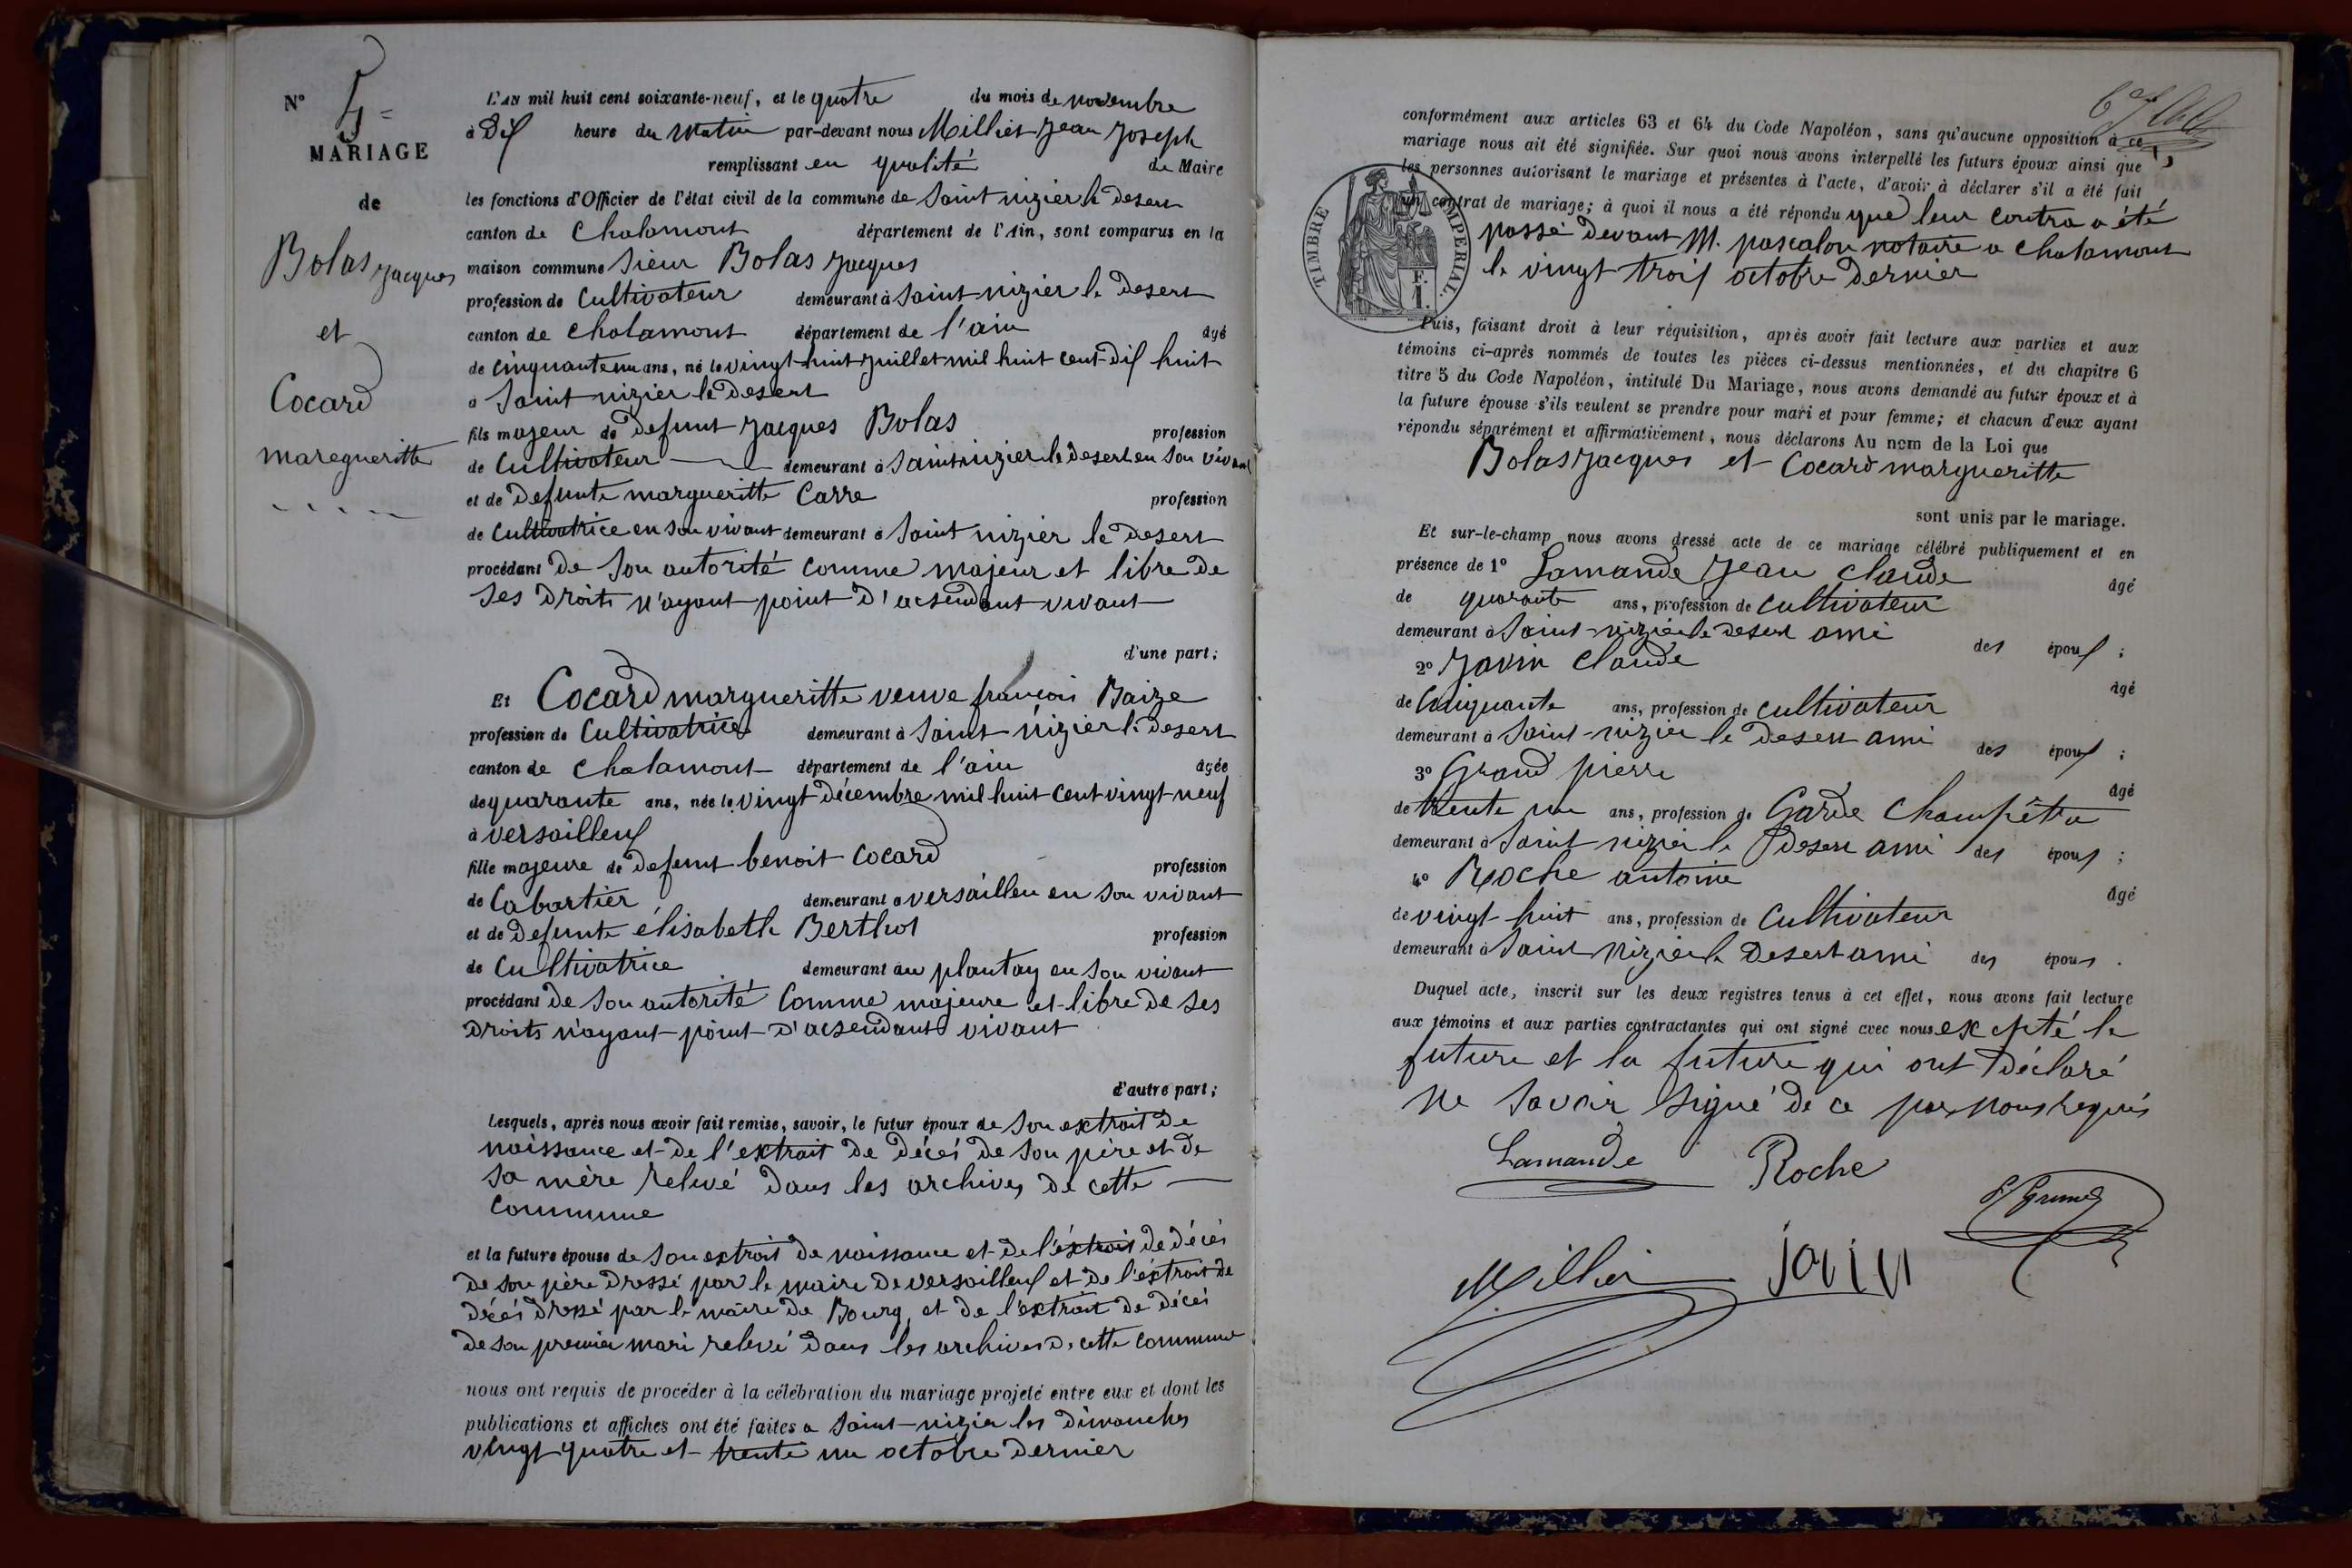 N° 5 =
MARIAGE
de
Bolas Jacques
et
Cocard
maregueritte
L'AN mil huit cent soixante-neuf, et le quatre du mois de novembre
à Dix heure du matin par-devant nous Milliet Jean Joseph
remplissant en qualité de Maire
les fonctions d'Officier de l'état civil de la commune de Saint nizier le Desert
canton de Chalamont département de l'Ain, sont comparus en la
maison commune Sieur Bolas Jacques
profession de Cultivateur demeurant à Saint-nizier le Desert
canton de Chalamont département de l'ain âgé
de cinquante un ans, né le vingt-huit Juillet mil huit cent-dix huit
à Saint nizier le Desert
fils majeur de Defunt Jacques Bolas profession
de Cultivateur demeurant à Saint nizier le desert en son vivant
et de Defunte margueritte Carre profession
de Cultivatrice en son vivant demeurant à Saint nizier le Desert
procédant De son autorité comme majeur et libre de
ses Droits n'ayant point D'acsendant vivant
d'une part;
Et Cocard margueritte veuve françois Baize
profession de Cultivatrice demeurant à Saint nizier le Desert
canton de Chalamont département de l'ain âgée
de quarante ans, née le vingt décembre mil huit cent vingt neuf
à versailleux
fille majeure de Defunt benoit Cocard profession
de Cabartier demeurant a versailleu en son vivant
et de Defunte élisabeth Berthot profession
de Cultivatrice demeurant au plantay en son vivant
procédant de son autorité Comme majeure et libre de ses
Droits n'ayant point D'acsendant vivant
d'autre part;
Lesquels, après nous avoir fait remise, savoir, le futur époux de son extrait De
naissance et de l'extrait de Décés de son père et de
sa mère relevé dans les archives de cette
Commune
et la future épouse de son extrait De naissance et De l'extrait de décés
De son père Dressé par le maire De versailleux et De l'extrait de
Décés dressé par le maire de Bourg, et de l'extrait de décés
de son premier mari relevé dans les archives de cette commune
nous ont requis de procéder à la célébration du mariage projeté entre eux et dont les
publications et affiches ont été faites a Saint-nizier les Dimanches
vingt quatre et trente un octobre dernier
conformément aux articles 63 et 64 du Code Napoléon, sans qu'aucune opposition à ce
mariage nous ait été signifiée. Sur quoi nous avons interpellé les futurs époux ainsi que
les personnes autorisant le mariage et présentes à l'acte, d'avoir à déclarer s'il a été fait
un contrat de mariage; à quoi il nous a été répondu que leur contra a été
TIMBRE IMPERIAL.
passé Devant M. pascalon notaire a Chalamont
le vingt trois octobre Dernier
Puis, faisant droit à leur réquisition, après avoir fait lecture aux parties et aux
témoins ci-après nommés de toutes les pièces ci-dessus mentionnées, et du chapitre 6
titre 5 du Code Napoléon, intitulé Du Mariage, nous avons demandé au futur époux et à
la future épouse s'ils veulent se prendre pour mari et pour femme; et chacun d'eux ayant
répondu séparément et affirmativement, nous déclarons Au nom de la Loi que
Bolas Jacques et Cocard margueritte
sont unis par le mariage.
Et sur-le-champ nous avons dressé acte de ce mariage célébré publiquement et en
présence de 1° Lamande Jean Claude âgé
de quarante ans, profession de Cultivateur
demeurant à Saint-nizier le desert ami des époux ;
2° Javin Claude âgé
de Cinquante ans, profession de cultivateur
demeurant à Saint-nizier le Desert ami des époux ;
3° Grand pierre âgé
de trente un ans, profession de Garde Champêtre
demeurant à Saint nizier le Desert ami des époux ;
4° Roche antoine âgé
de vingt-huit ans, profession de Cultivateur
demeurant à Saint Nizier le Desert ami des époux .
Duquel acte, inscrit sur les deux registres tenus à cet effet, nous avons fait lecture
aux témoins et aux parties contractantes qui ont signé avec nous excepté le
future et la future qui ont Déclaré
ne savoir signé de ce par nous requis
Lamande Roche
Millier Javin